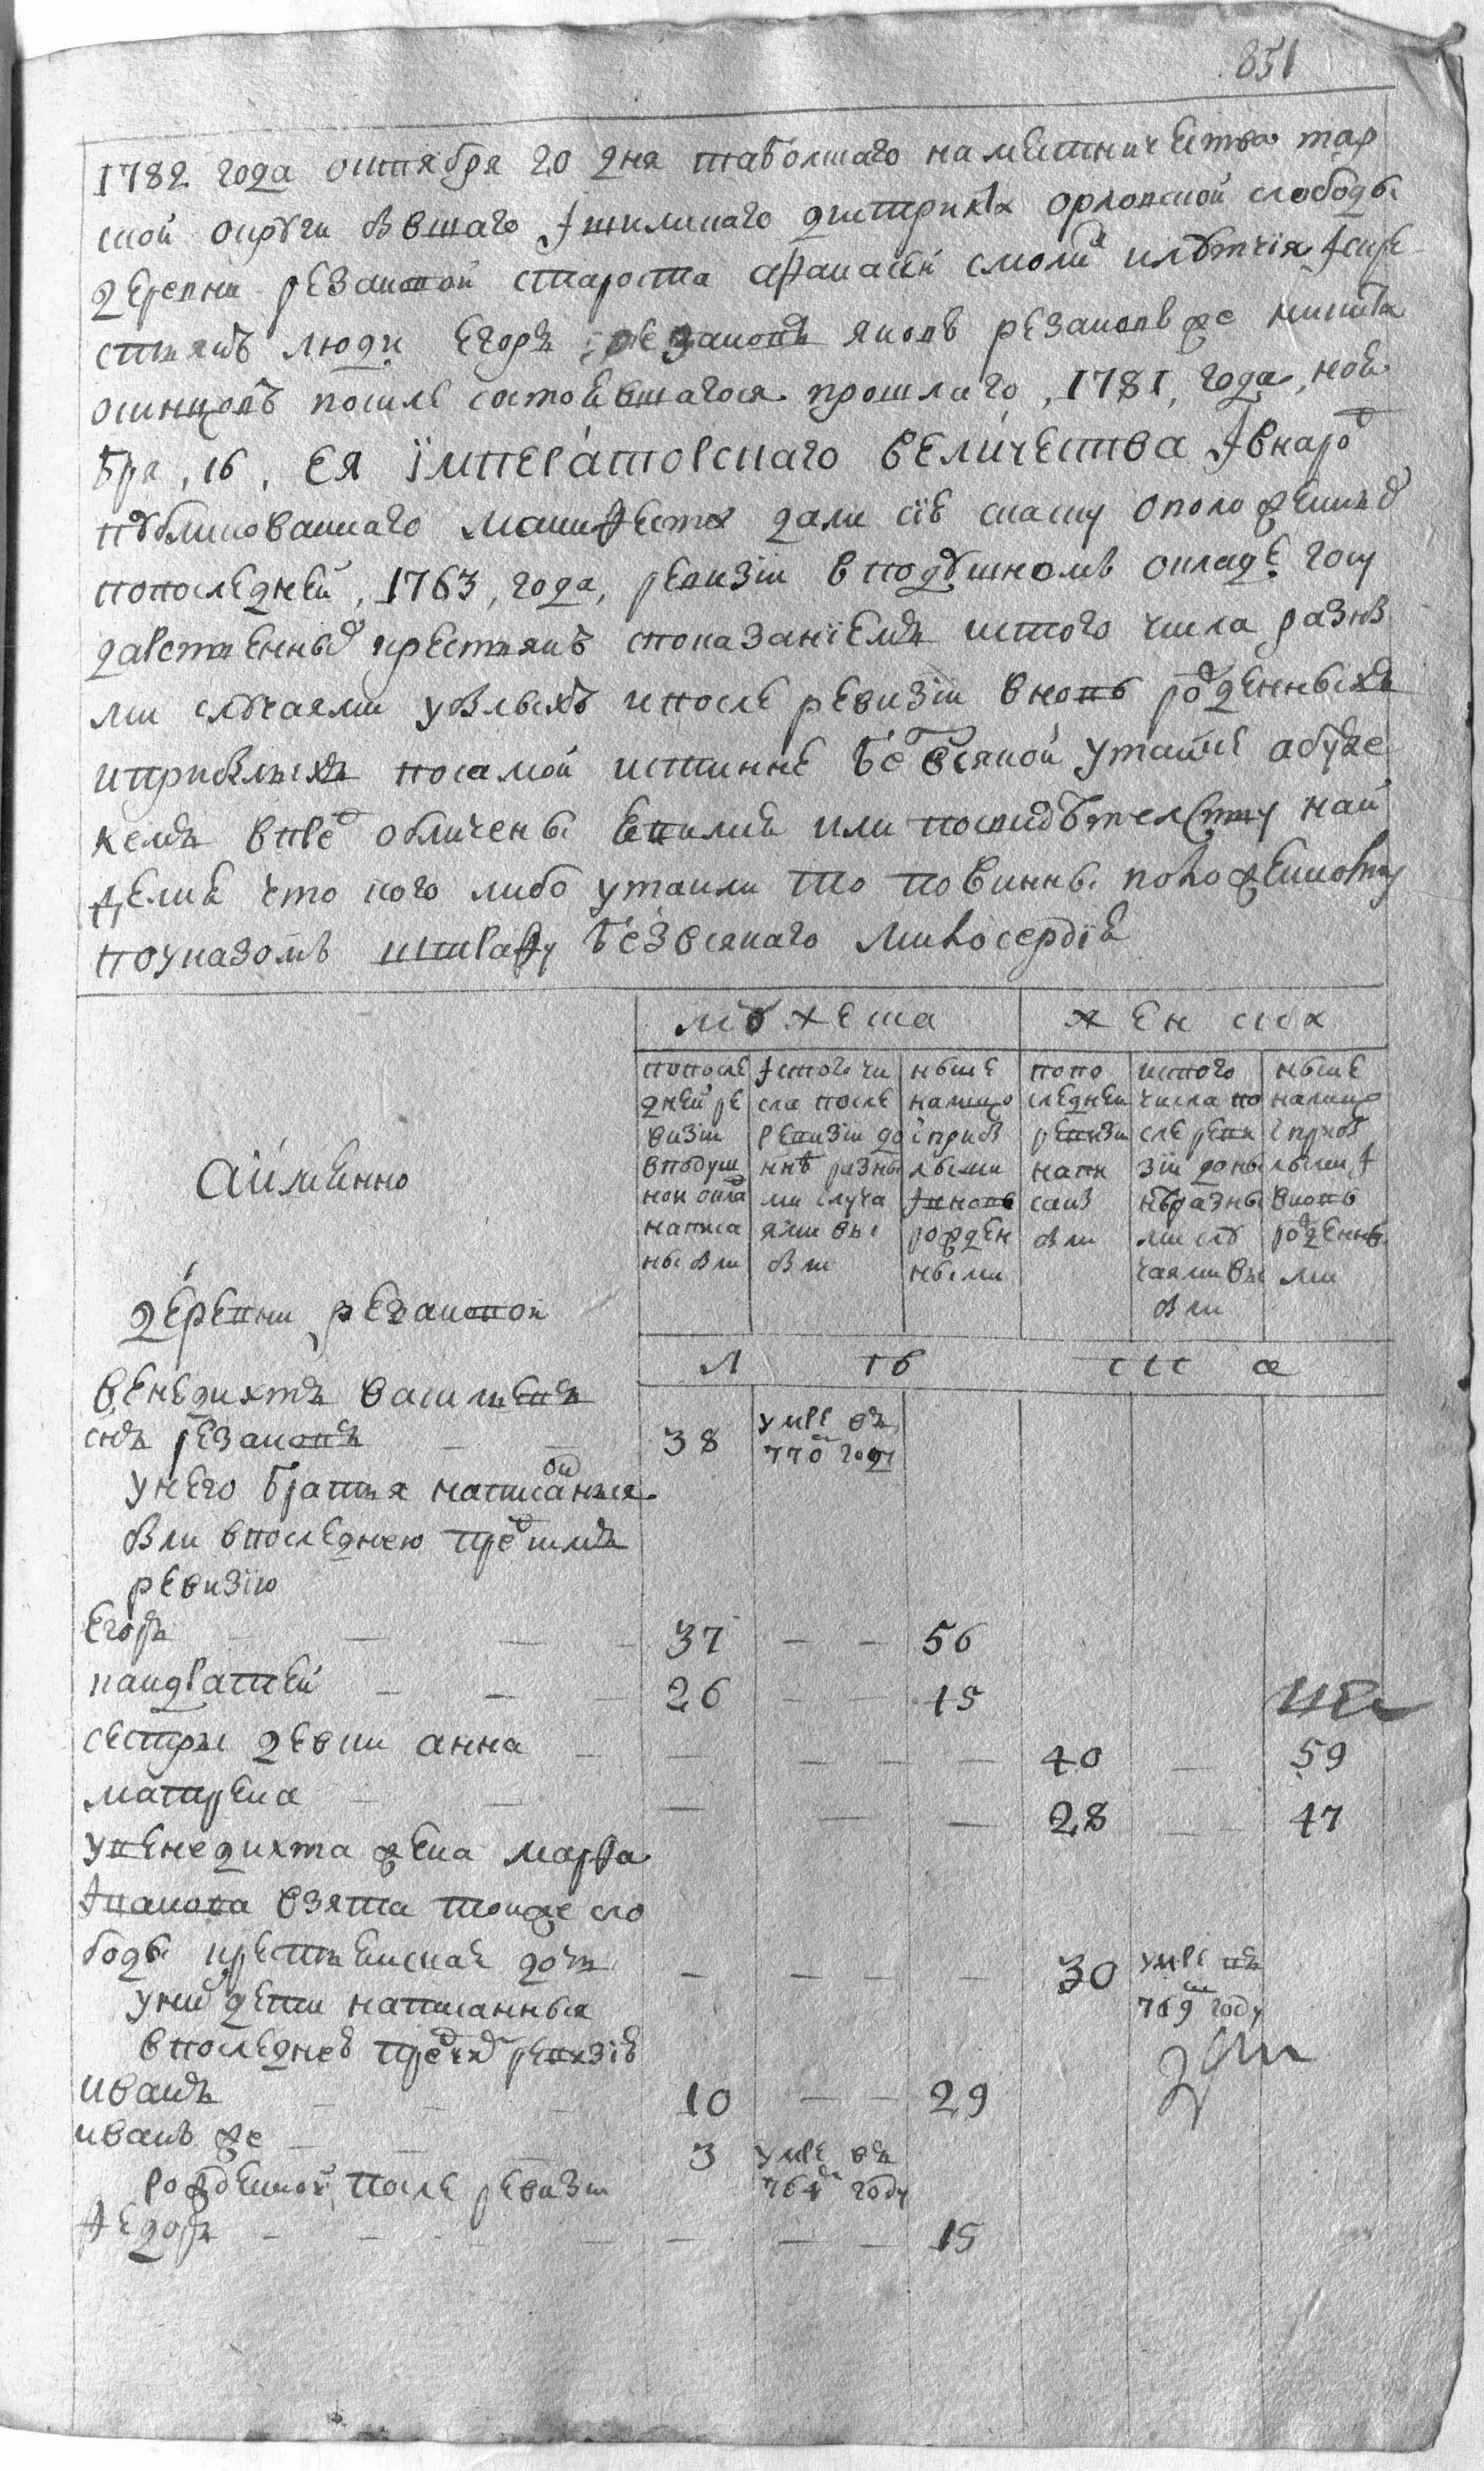 851
1782 года октября 20 дня таболскаго наместничества тар
ской округи бывшаго ишимскаго дистрикта орловской слободы
деревни резановой староста афанасеи смолин и лутчия и кре
стьянъ люди егоръ резановъ яковъ резановъ же никита
осинцовъ после состоявшагося прошлаго, 1781, года, ноя
бря, 16, ея императорскаго величества и внарод
публикованнаго манифеста дали сие скаску о положенных
по последней, 1763, года, ревизии в подушномъ окладе госу
дарственных крестьянъ с показаниемъ ис того числа разны
ми случаями убылыхъ и после ревизии вновь рожденныхъ
и прибылыхъ по самой истинне без всякой утайки а буде
кемъ впред обличены явимся или по свидѣтелству най
дется что кого либо утаили то повинны положенному
по указомъ штрафу без всякаго милосердия
мужеска
женска
А имянно
по после
дней ре
визии
в подуш
ном окла
написа
ны были
ис того чи
сла после
ревизии до
ныне разны
ми случа
ями вы
были
ныне
налицо
с прибы
лыми
и вновь
рожден
ными
по по
следнеи
ревизии
напи
саны
были
ис того
числа по
сле реви
зии доны
нѣ разны
ми слу
чаями вы
были
ныне
налицо
с прибы
лыми и
вновь
рожденны
ми
деревни резановой
Л ѣ т а
венедихтъ васильевъ
сынъ резановъ 38 умре въ 770м году
у него братья написанныя
были в последнею пред симъ
ревизию
Егоръ 37 56
панкратей 26 45
сестры девки анна 40 59
матрена 28 47
у венедихта жена марфа
иванова взята тои же сло
боды крестьянская дочь 30 умре въ 769м году
у них дети написанныя
в последней пред сим ревизии
иванъ 10 29
иванъ же 3 умре въ 764м году
рожденной после ревизии
федоръ 15